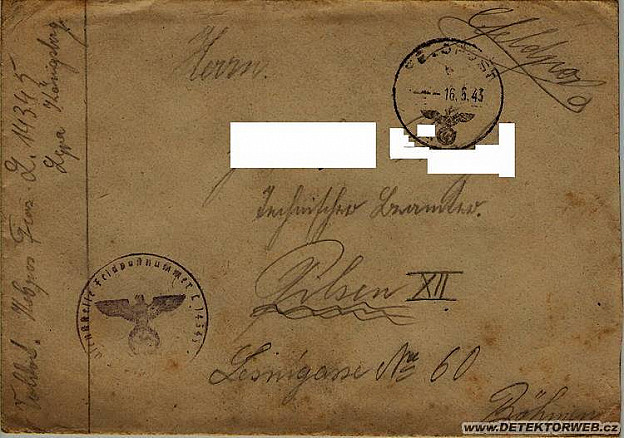 Feldpost
Herrn.
FELDPOST
16.6.43
Technischer Beamter.
Pilsen XII
Lesnigasse No 60
Böhmen
Dienststelle Feldpostnummer L 14345
L. 14345
Lgpa Königsberg
www.DETEKTORWEB.cz